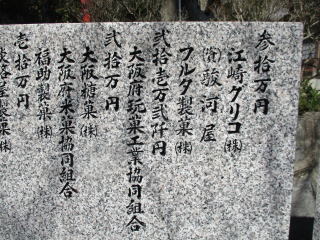 参拾万円
江崎グリコ㈱
㈲駿河屋
フルタ製菓㈱
弐拾壱万弐仟円
大阪府玩菓工業協同組合
弐拾万円
大阪糖菓㈱
大阪府米菓協同組合
福助製菓㈱
壱拾万円